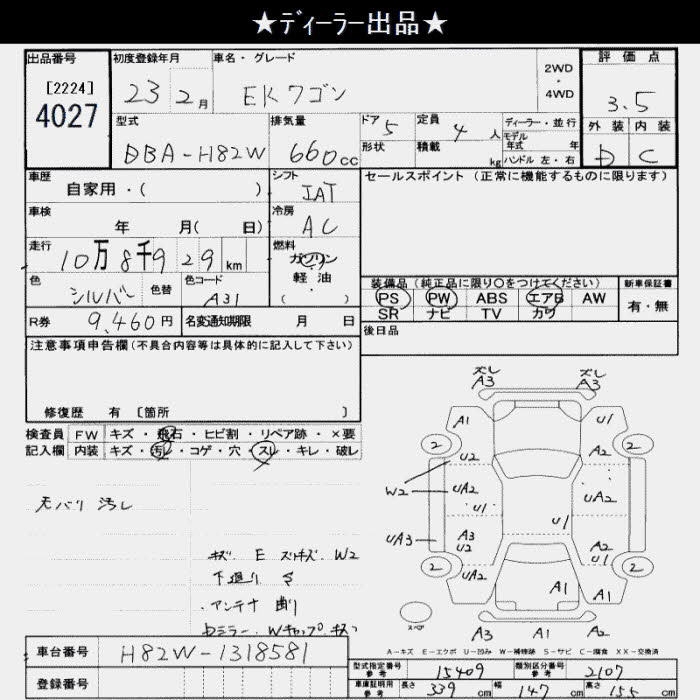 ★ディーラー出品★
出品番号 初度登録年月 車名・グレード 2WD ・ 4WD 評価点
[2224] 4027 23年 2月 EKワゴン 3.5
型式 排気量 ドア 5 定員 4人 ディーラー・並行 外装 内装
DBA-H82W 660cc 形状 積載 kg モデル年式 年 D C
ハンドル 左・右
車歴 シフト セールスポイント (正常に機能するものに限ります)
自家用・( ) IAT
車検 冷房
年 月( 日) AC
走行 燃料
10万8千929km ガソリン
色 色替 色コード 軽油
シルバー A31 ( )
装備品 (純正品に限り○をつけてください) 新車保証書
PS PW ABS エアB AW 有・無
SR ナビ TV カワ
R券 9,460円 名変通知期限 月 日
後日品
注意事項申告欄 (不具合内容等は具体的に記入して下さい)
修復歴 有 [箇所 ]
検査員 FW キズ・飛石・ヒビ割・リペア跡・×要
記入欄 内装 キズ・汚レ・コゲ・穴・スレ・キレ・破レ
天バリ 汚レ
キズ E スリキズ W2
下廻り S
・アンテナ 曲り
ズレ A3 ズレ A3
A1 U1
2 A2 2
U2
W2 UA2 UA2
U1 U1
UA3 A3 U2 A2 U1
2 UA2 2
A1 A1
スペア
A3 A1 A2
A-キズ E-エクボ U-凹み W-補修跡 S-サビ C-腐食 XX-交換済
車台番号 H82W-1318581
登録番号
型式指定番号 参考 15409 類別区分番号 参考 2107
車庫証明用 参考 長さ 339cm 幅 147cm 高さ 155cm